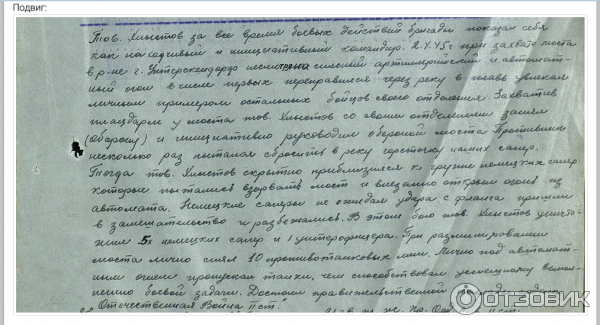 Подвиг:
Тов. Хлыстов за все время боевых действий бригады показал себя
как находчивый и инициативный командир. 2.4.45г при захвате моста
в р-не г. Унтерскендорф несмотря на сильный артиллерийский и автомат-
ный огонь в числе первых переправился через реку и повёл увлекая
личным примером остальных бойцов своего отделения. Захватив
плацдарм у моста тов. Хлыстов со своим отделением занял
(оборону) и инициативно руководил обороной моста. Противник
несколько раз пытался сбросить в реку горсточку наших сапер.
Тогда тов. Хлыстов скрытно приблизился к группе немецких сапер
которые пытались взорвать мост и внезапно открыл огонь из
автомата. Немецкие саперы не ожидая удара с фланга пришли
в замешательство и разбежались. В этом бою тов. Хлыстов уничто-
жил 5х немецких сапер и 1 унтерофицера. При разминировании
моста лично снял 10 противотанковых мин. Лично под автомат-
ным огнем пропускал танки, чем способствовал успешному выпол-
нению боевой задачи. Достоин правительственной
"Отечественная Война II ст."
ОТЗОВИК